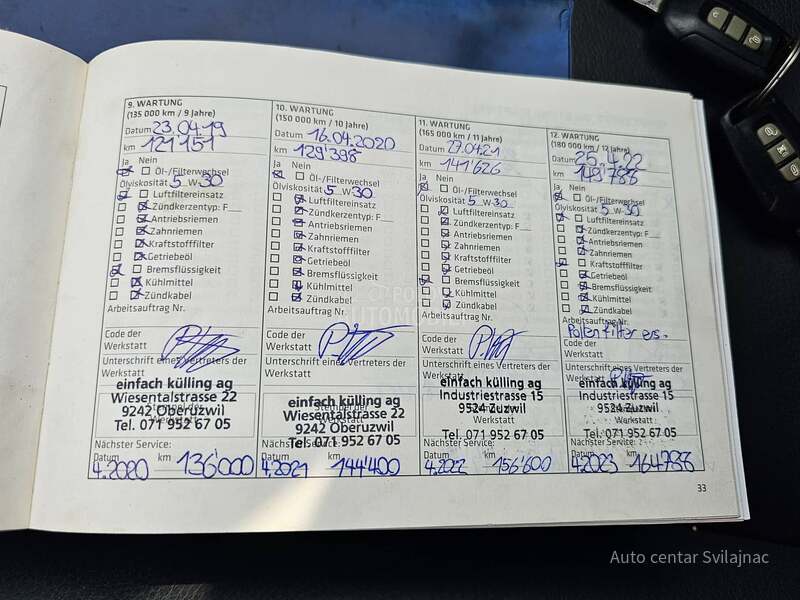 9. WARTUNG
(135 000 km / 9 Jahre)
Datum 23.04.19
km 121'151
Ja Nein
Öl-/Filterwechsel
Ölviskosität 5 W 30
Luftfiltereinsatz
Zündkerzentyp: F__
Antriebsriemen
Zahnriemen
Kraftstofffilter
Getriebeöl
Bremsflüssigkeit
Kühlmittel
Zündkabel
Arbeitsauftrag Nr.
Code der
Werkstatt
Unterschrift eines Vertreters der
Werkstatt
einfach külling ag
Wiesentalstrasse 22
9242 Oberuzwil
Tel. 071 952 67 05
Nächster Service:
Datum km
4.2020 136'000
10. WARTUNG
(150 000 km / 10 Jahre)
Datum 16.04.2020
km 129'398
Ja Nein
Öl-/Filterwechsel
Ölviskosität 5 W 30
Luftfiltereinsatz
Zündkerzentyp: F__
Antriebsriemen
Zahnriemen
Kraftstofffilter
Getriebeöl
Bremsflüssigkeit
Kühlmittel
Zündkabel
Arbeitsauftrag Nr.
Code der
Werkstatt
Unterschrift eines Vertreters der
Werkstatt
einfach külling ag
Wiesentalstrasse 22
9242 Oberuzwil
Tel. 071 952 67 05
Nächster Service:
Datum km
4.2021 144'400
11. WARTUNG
(165 000 km / 11 Jahre)
Datum 27.04.21
km 141'626
Ja Nein
Öl-/Filterwechsel
Ölviskosität 5 W 30
Luftfiltereinsatz
Zündkerzentyp: F__
Antriebsriemen
Zahnriemen
Kraftstofffilter
Getriebeöl
Bremsflüssigkeit
Kühlmittel
Zündkabel
Arbeitsauftrag Nr.
Code der
Werkstatt
Unterschrift eines Vertreters der
Werkstatt
einfach külling ag
Industriestrasse 15
9524 Zuzwil
Werkstatt
Tel. 071 952 67 05
Nächster Service:
Datum km
4.2022 156'600
12. WARTUNG
(180 000 km / 12 Jahre)
Datum 25.4.22
km 149'788
Ja Nein
Öl-/Filterwechsel
Ölviskosität 5 W 30
Luftfiltereinsatz
Zündkerzentyp: F__
Antriebsriemen
Zahnriemen
Kraftstofffilter
Getriebeöl
Bremsflüssigkeit
Kühlmittel
Zündkabel
Arbeitsauftrag Nr.
Polenfilter ers.
Code der
Werkstatt
Unterschrift eines Vertreters der
Werkstatt
einfach külling ag
Industriestrasse 15
9524 Zuzwil
Werkstatt
Tel. 071 952 67 05
Nächster Service:
Datum km
4.2023 164788
33
Auto centar Svilajnac